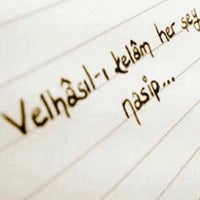 Velhâsıl-ı kelâm her şey
nasip...